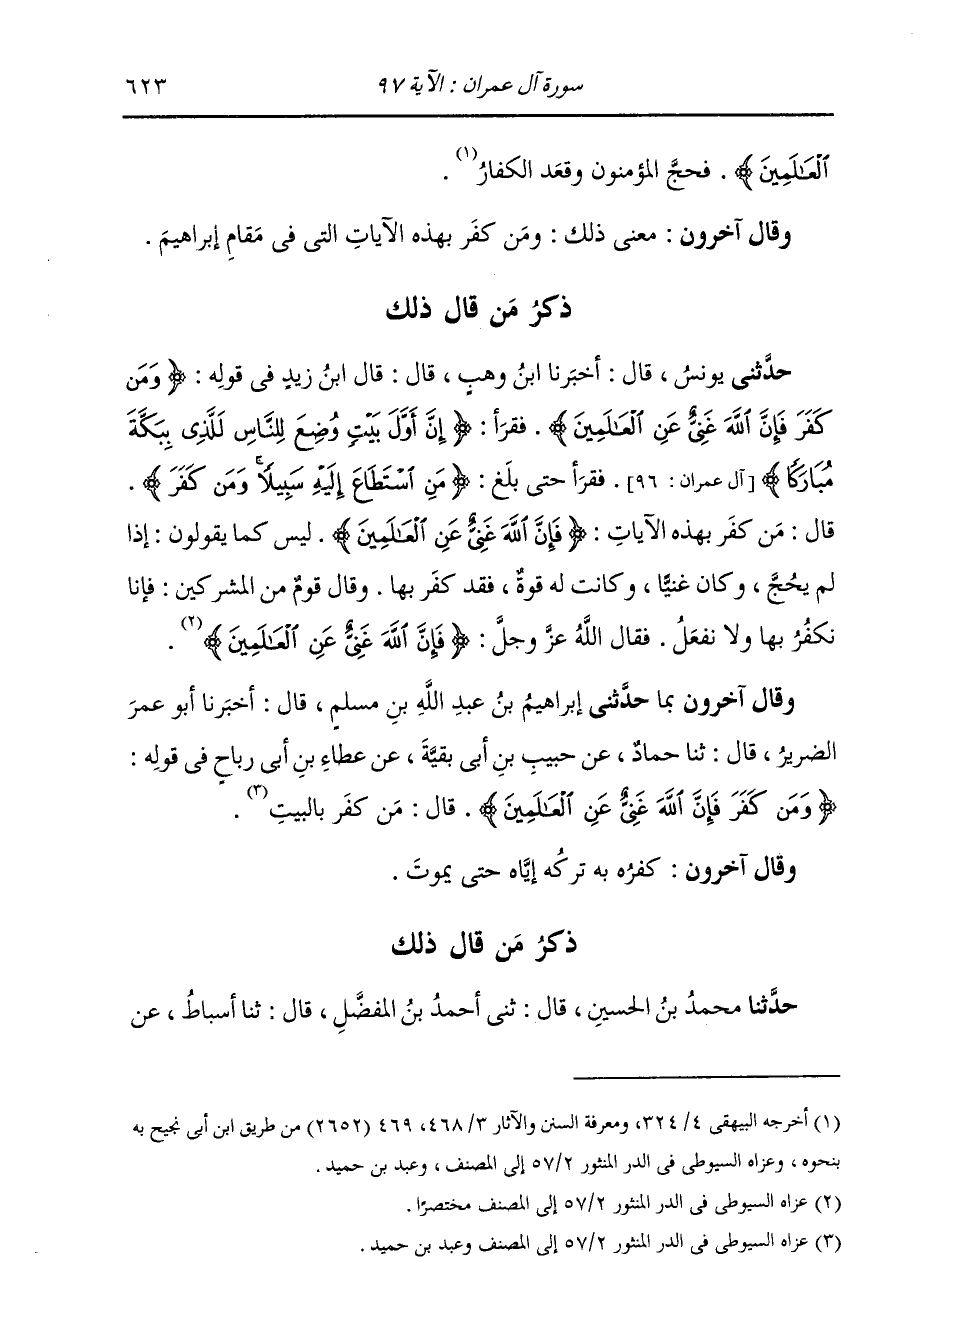 سورة آل عمران : الآية ٩٧ ٦٢٣
ٱلْعَـٰلَمِينَ ﴾ . فحجَّ المؤمنون وقعَد الكفارُ(١) .
وقال آخرون : معنى ذلك : ومَن كفَر بهذه الآياتِ التى فى مَقامِ إبراهيمَ .
ذكرُ مَن قال ذلك
حدَّثنى يونسُ ، قال : أخبَرنا ابنُ وهبٍ ، قال : قال ابنُ زيدٍ فى قولِه : ﴿ وَمَن
كَفَرَ فَإِنَّ ٱللَّهَ غَنِىٌّ عَنِ ٱلْعَـٰلَمِينَ ﴾ . فقرَأ : ﴿ إِنَّ أَوَّلَ بَيْتٍ وُضِعَ لِلنَّاسِ لَلَّذِى بِبَكَّةَ
مُبَارَكًا ﴾ [ آل عمران : ٩٦] . فقرَأ حتى بلَغ : ﴿ مَنِ ٱسْتَطَاعَ إِلَيْهِ سَبِيلًاۚ وَمَن كَفَرَ ﴾ .
قال : مَن كفَر بهذه الآياتِ : ﴿ فَإِنَّ ٱللَّهَ غَنِىٌّ عَنِ ٱلْعَـٰلَمِينَ ﴾ . ليس كما يقولون : إذا
لم يحُجَّ ، وكان غنيًّا ، وكانت له قوةٌ ، فقد كفَر بها . وقال قومٌ من المشركين : فإنا
نكفُرُ بها ولا نفعَلُ . فقال اللَّهُ عزَّ وجلَّ : ﴿ فَإِنَّ ٱللَّهَ غَنِىٌّ عَنِ ٱلْعَـٰلَمِينَ ﴾(٢) .
وقال آخرون بما حدَّثنى إبراهيمُ بنُ عبدِ اللَّهِ بنِ مسلمٍ ، قال : أخبَرنا أبو عمرَ
الضريرُ ، قال : ثنا حمادٌ ، عن حبيبِ بنِ أبى بقيَّةَ ، عن عطاءِ بنِ أبى رباحٍ فى قولِه :
﴿ وَمَن كَفَرَ فَإِنَّ ٱللَّهَ غَنِىٌّ عَنِ ٱلْعَـٰلَمِينَ ﴾ . قال : مَن كفَر بالبيتِ(٣) .
وقال آخرون : كفرُه به تركُه إيَّاه حتى يموتَ .
ذكرُ مَن قال ذلك
حدَّثنا محمدُ بنُ الحسينِ ، قال : ثنى أحمدُ بنُ المفضَّلِ ، قال : ثنا أسباطُ ، عن
(١) أخرجه البيهقى ٤/ ٣٢٤، ومعرفة السنن والآثار ٣/ ٤٦٨، ٤٦٩ (٢٦٥٢) من طريق ابن أبى نجيح به
بنحوه ، وعزاه السيوطى فى الدر المنثور ٥٧/٢ إلى المصنف ، وعبد بن حميد .
(٢) عزاه السيوطى فى الدر المنثور ٥٧/٢ إلى المصنف مختصرًا .
(٣) عزاه السيوطى فى الدر المنثور ٥٧/٢ إلى المصنف وعبد بن حميد .